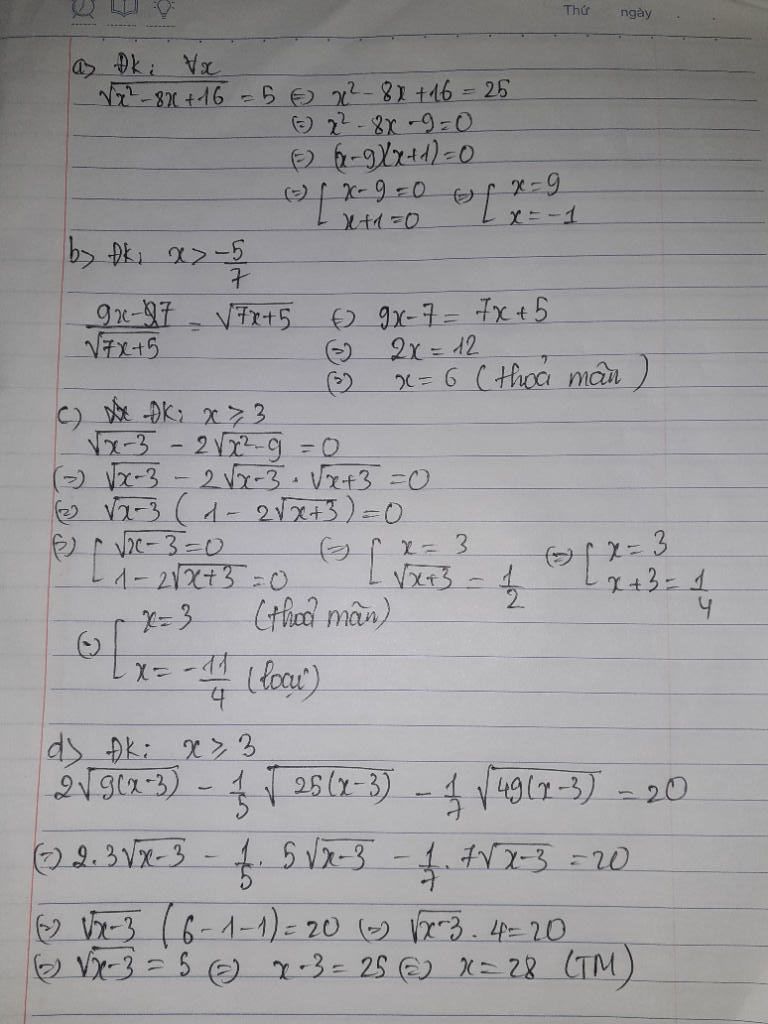 Thứ ngày
a> Đk: ∀x
√(x² - 8x + 16) = 5 (=) x² - 8x + 16 = 25
(=) x² - 8x - 9 = 0
(=) (x-9)(x+1) = 0
(=) [ x - 9 = 0 (=) [ x = 9
x + 1 = 0 x = -1
b> Đk: x > -5/7
(9x - 7)/√(7x+5) = √(7x+5) (=) 9x - 7 = 7x + 5
(=) 2x = 12
(=) x = 6 (thoả mãn)
c) Đk: x ≥ 3
√(x-3) - 2√(x²-9) = 0
(=) √(x-3) - 2√(x-3) . √(x+3) = 0
(=) √(x-3) ( 1 - 2√(x+3) ) = 0
(=) [ √(x-3) = 0 (=) [ x = 3 (=) [ x = 3
1 - 2√(x+3) = 0 √(x+3) = 1/2 x + 3 = 1/4
(=) [ x = 3 (thoả mãn)
x = -11/4 (loại)
d> Đk: x ≥ 3
2√(9(x-3)) - 1/5 √(25(x-3)) - 1/7 √(49(x-3)) = 20
(=) 2.3√(x-3) - 1/5 . 5√(x-3) - 1/7 . 7√(x-3) = 20
(=) √(x-3) (6-1-1) = 20 (=) √(x-3) . 4 = 20
(=) √(x-3) = 5 (=) x - 3 = 25 (=) x = 28 (TM)